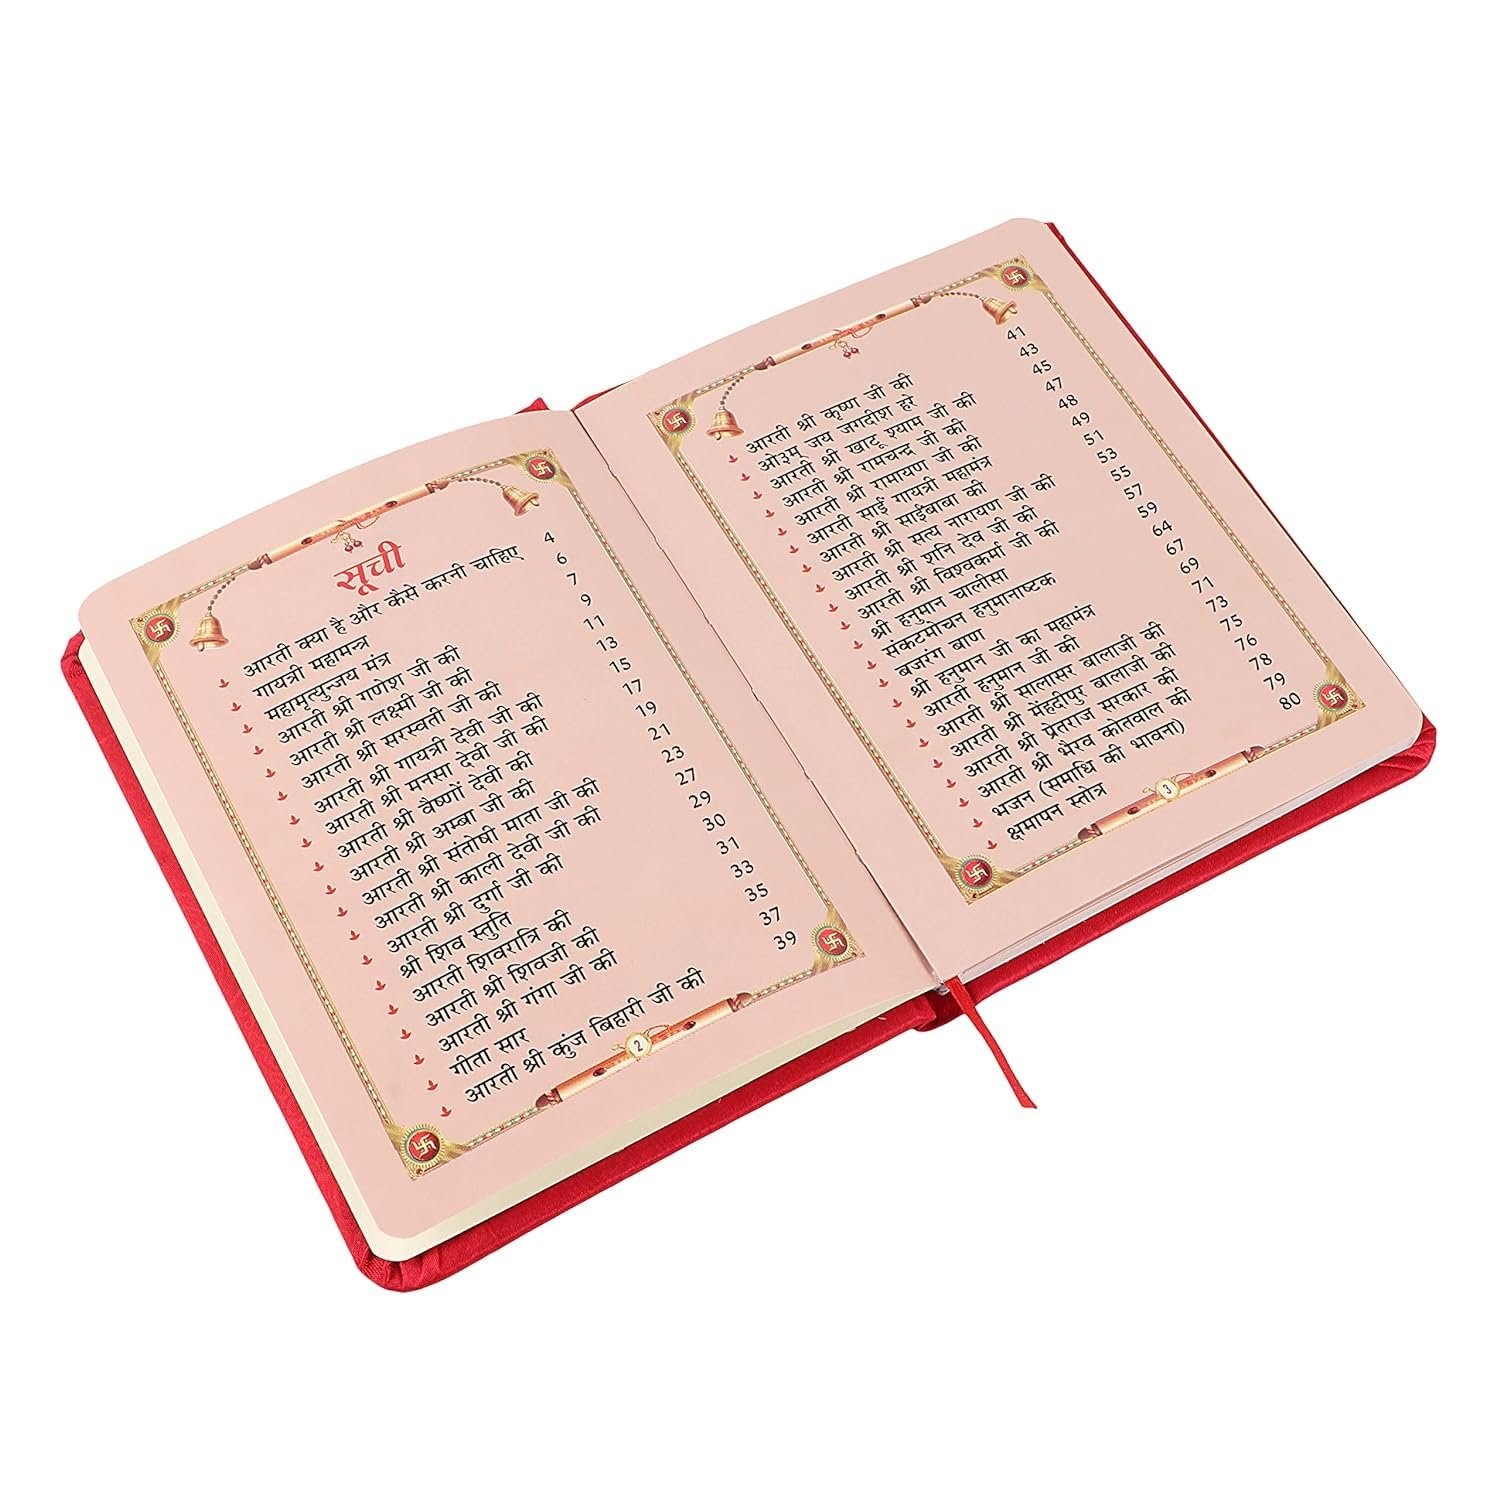 सूची
आरती क्या है और कैसे करनी चाहिए 4
गायत्री महामन्त्र 6
महामृत्युन्जय मंत्र 7
आरती श्री गणेश जी की 9
आरती श्री लक्ष्मी जी की 11
आरती श्री सरस्वती जी की 13
आरती श्री गायत्री देवी जी की 15
आरती श्री मनसा देवी जी की 17
आरती श्री वैष्णों देवी की 19
आरती श्री अम्बा जी की 21
आरती श्री संतोषी माता जी की 23
आरती श्री काली देवी जी की 27
आरती श्री दुर्गा जी की 29
श्री शिव स्तुति 30
आरती शिवरात्रि की 31
आरती श्री शिवजी की 33
आरती श्री गंगा जी की 35
गीता सार 37
आरती श्री कुंज बिहारी जी की 39
2
आरती श्री कृष्ण जी की 41
ओ३म् जय जगदीश हरे 43
आरती श्री खाटू श्याम जी की 45
आरती श्री रामचन्द्र जी की 47
आरती श्री रामायण जी की 48
आरती साईं गायत्री महामंत्र 49
आरती श्री साईंबाबा की 51
आरती श्री सत्य नारायण जी की 53
आरती श्री शनि देव जी की 55
आरती श्री विश्वकर्मा जी की 57
श्री हनुमान चालीसा 59
संकटमोचन हनुमानाष्टक 64
बजरंग बाण 67
श्री हनुमान जी का महामंत्र 69
आरती हनुमान जी की 71
आरती श्री सालासर बालाजी की 73
आरती श्री मेंहदीपुर बालाजी की 75
आरती श्री प्रेतराज सरकार की 76
आरती श्री भैरव कोतवाल की 78
भजन (समाधि की भावना) 79
क्षमापन स्तोत्र 80
3